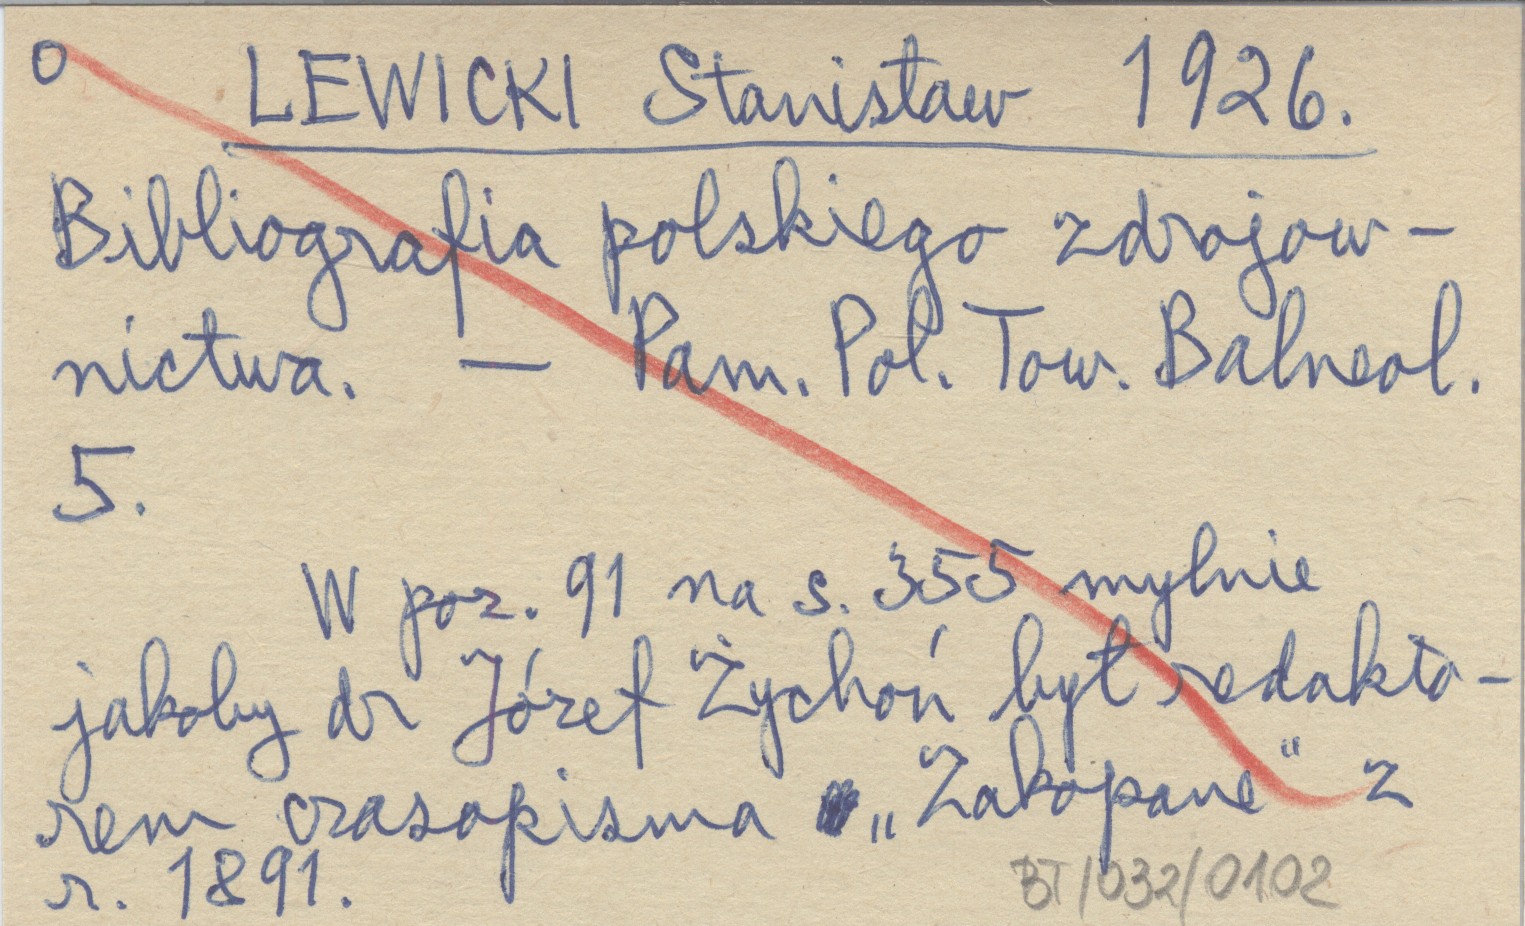 o LEWICKI Stanisław 1926.
Bibliografia polskiego zdrojow-
nictwa. — Pam. Pol. Tow. Balneol.
5.
W poz. 91 na s. 355 mylnie
jakoby dr Józef Żychoń był redakto-
rem czasopisma „Zakopane" z
r. 1891.
BT/032/0102